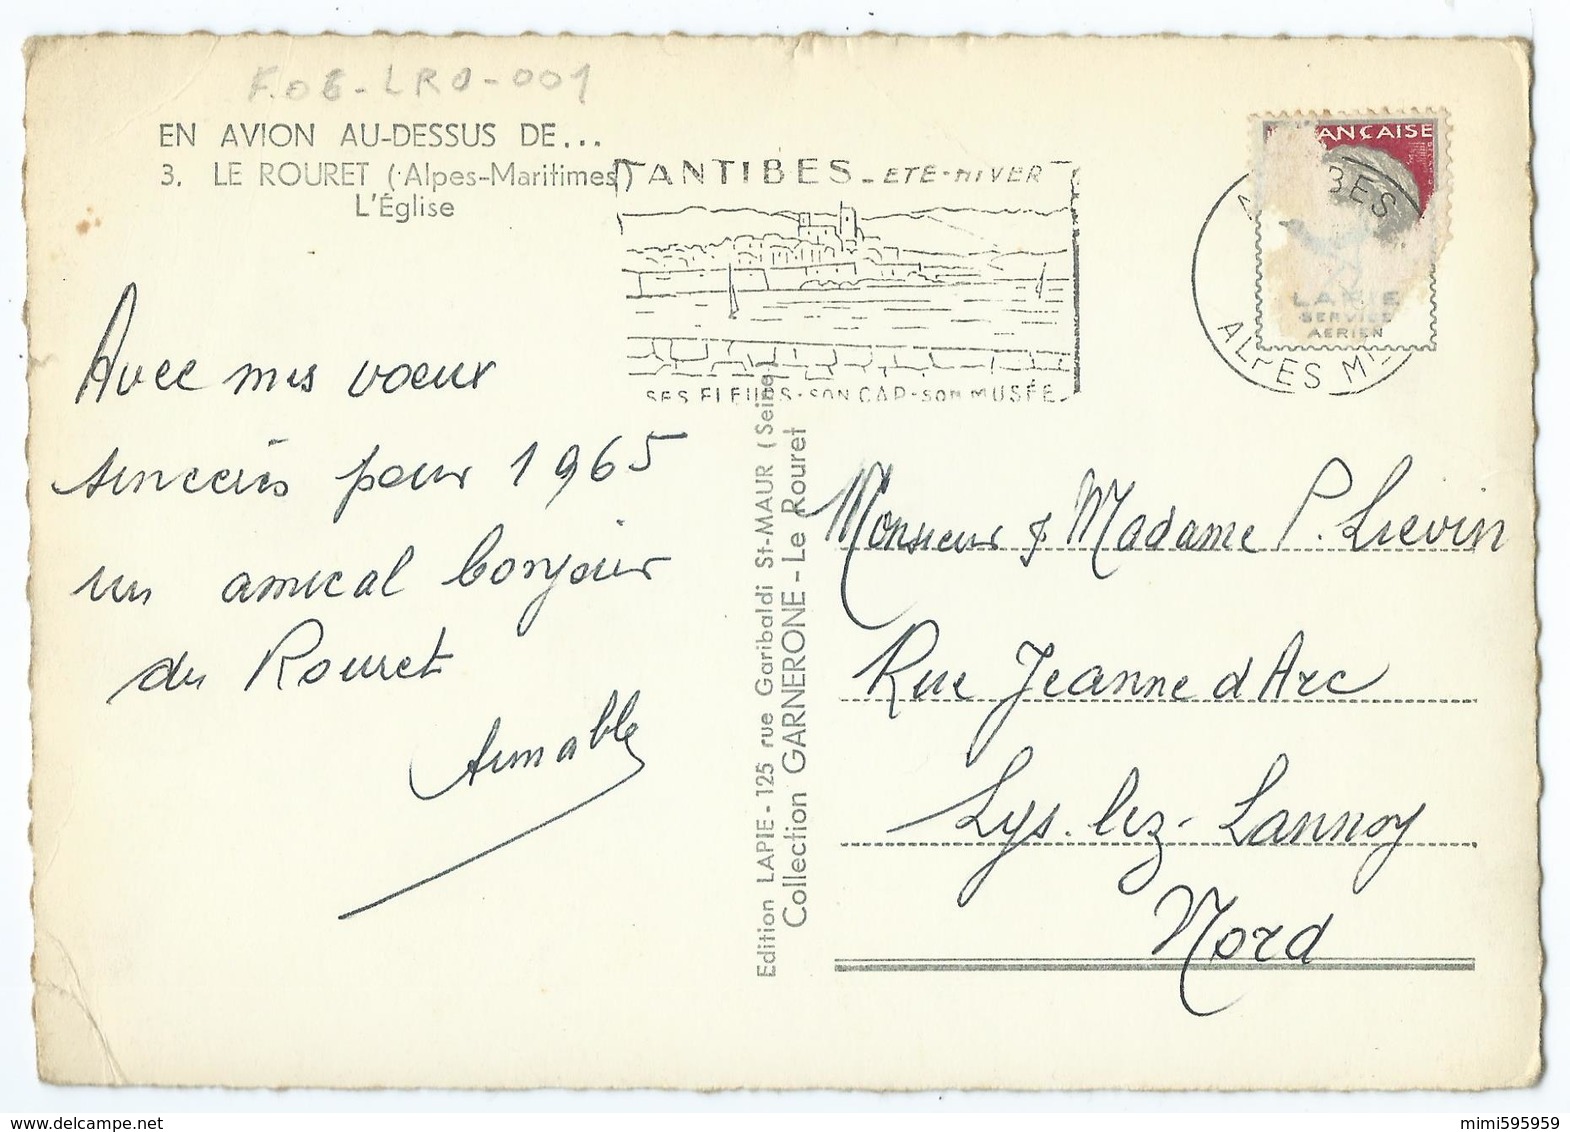 F.06-LRO-001
EN AVION AU-DESSUS DE...
3. LE ROURET (Alpes-Maritimes)
L'Église
ANTIBES - ETE-HIVER
SES FLEURS-SON CAP-SON MUSÉE
ANÇAISE
BES
ALPES M
LAPIE
SERVICE
AERIEN
Avec mes voeux
sincères pour 1965
un amical bonjour
du Rouret
Aimable
Edition LAPIE - 125 rue Garibaldi St-MAUR (Seine)
Collection GARNERONE - Le Rouret
Monsieur & Madame P. Lievin
Rue Jeanne d'Arc
Lys-lez-Lannoy
Nord
https://www.delcampe.net
mimi595959